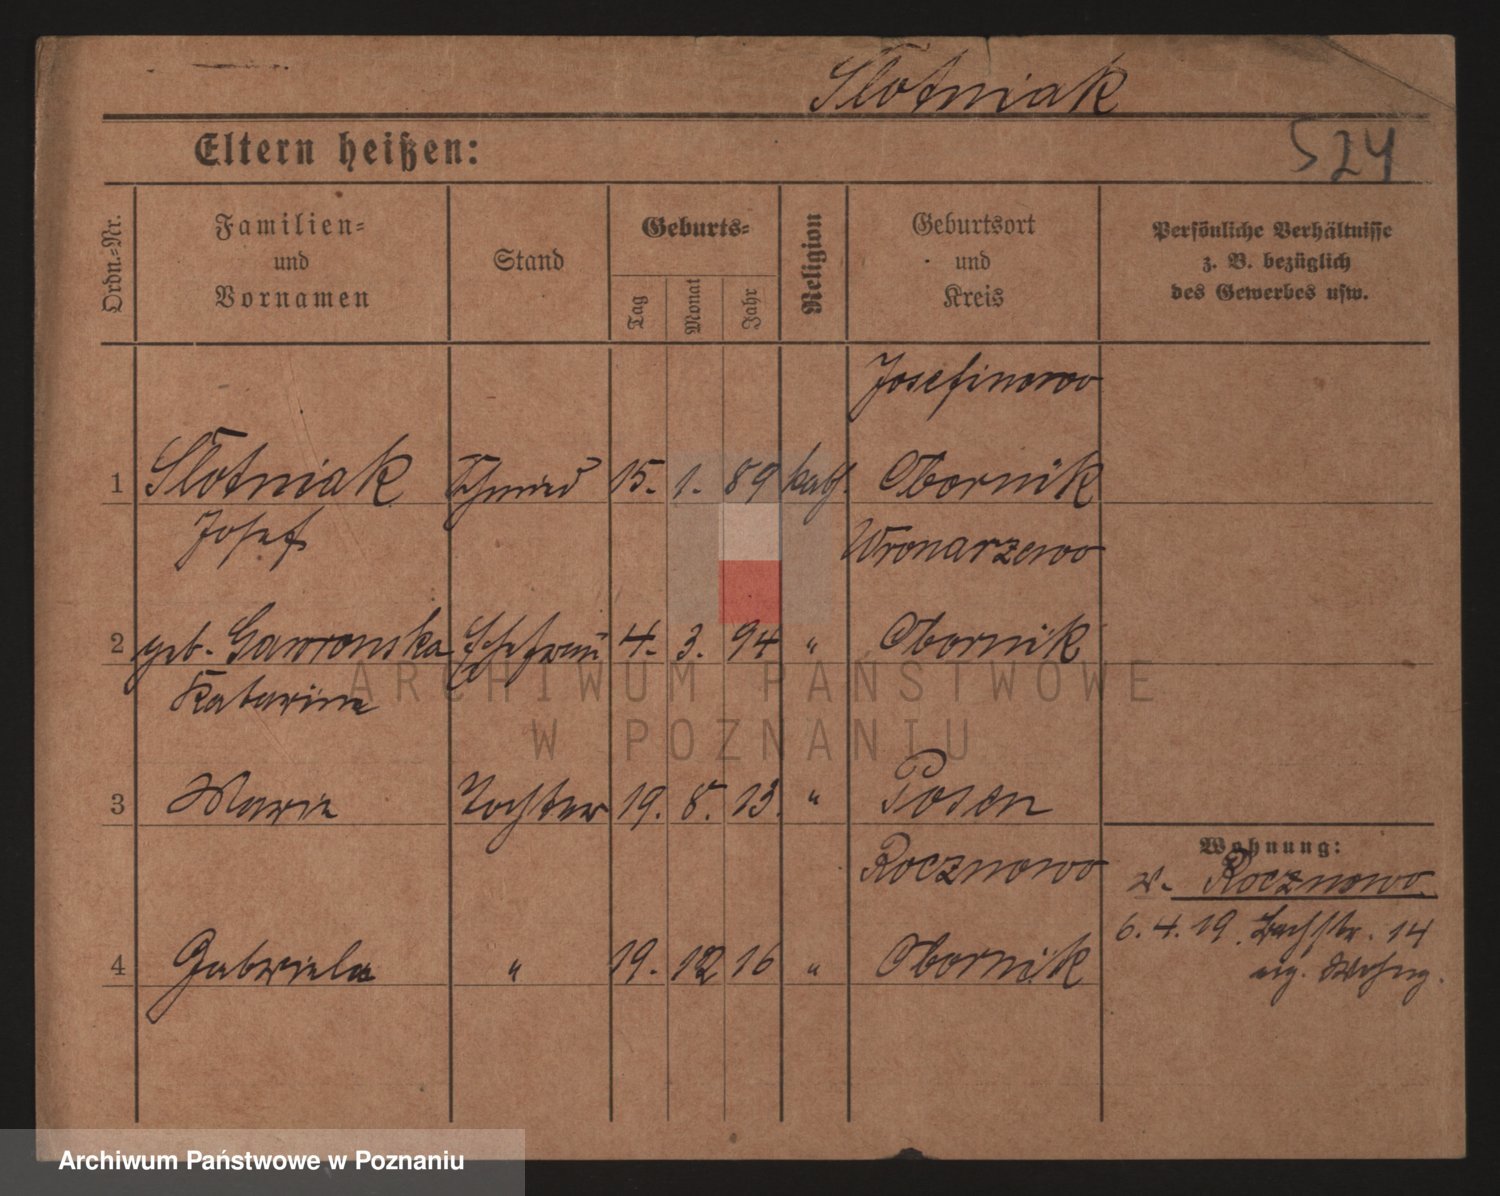 Slotniak
Eltern heißen:
524
Ordn.-Nr.
Familien-
und
Vornamen
Stand
Geburts-
Tag
Monat
Jahr
Religion
Geburtsort
und
Kreis
Persönliche Verhältnisse
z. B. bezüglich
des Gewerbes usw.
Josefinowo
1 Slotniak Schmied 15. 1. 89 kath. Obornik
Josef Wronarzewo
2 geb. Gawronska Ehefrau 4. 3. 94 " Obornik
Katarina
3 Marie Tochter 19. 8. 13. " Posen
Wohnung:
Rocznowo v. Rocznowo
6.4.19. Bachstr. 14
4 Gabriela " 19. 12 16 " Obornik eig. Wohng.
ARCHIWUM PAŃSTWOWE
W POZNANIU
Archiwum Państwowe w Poznaniu